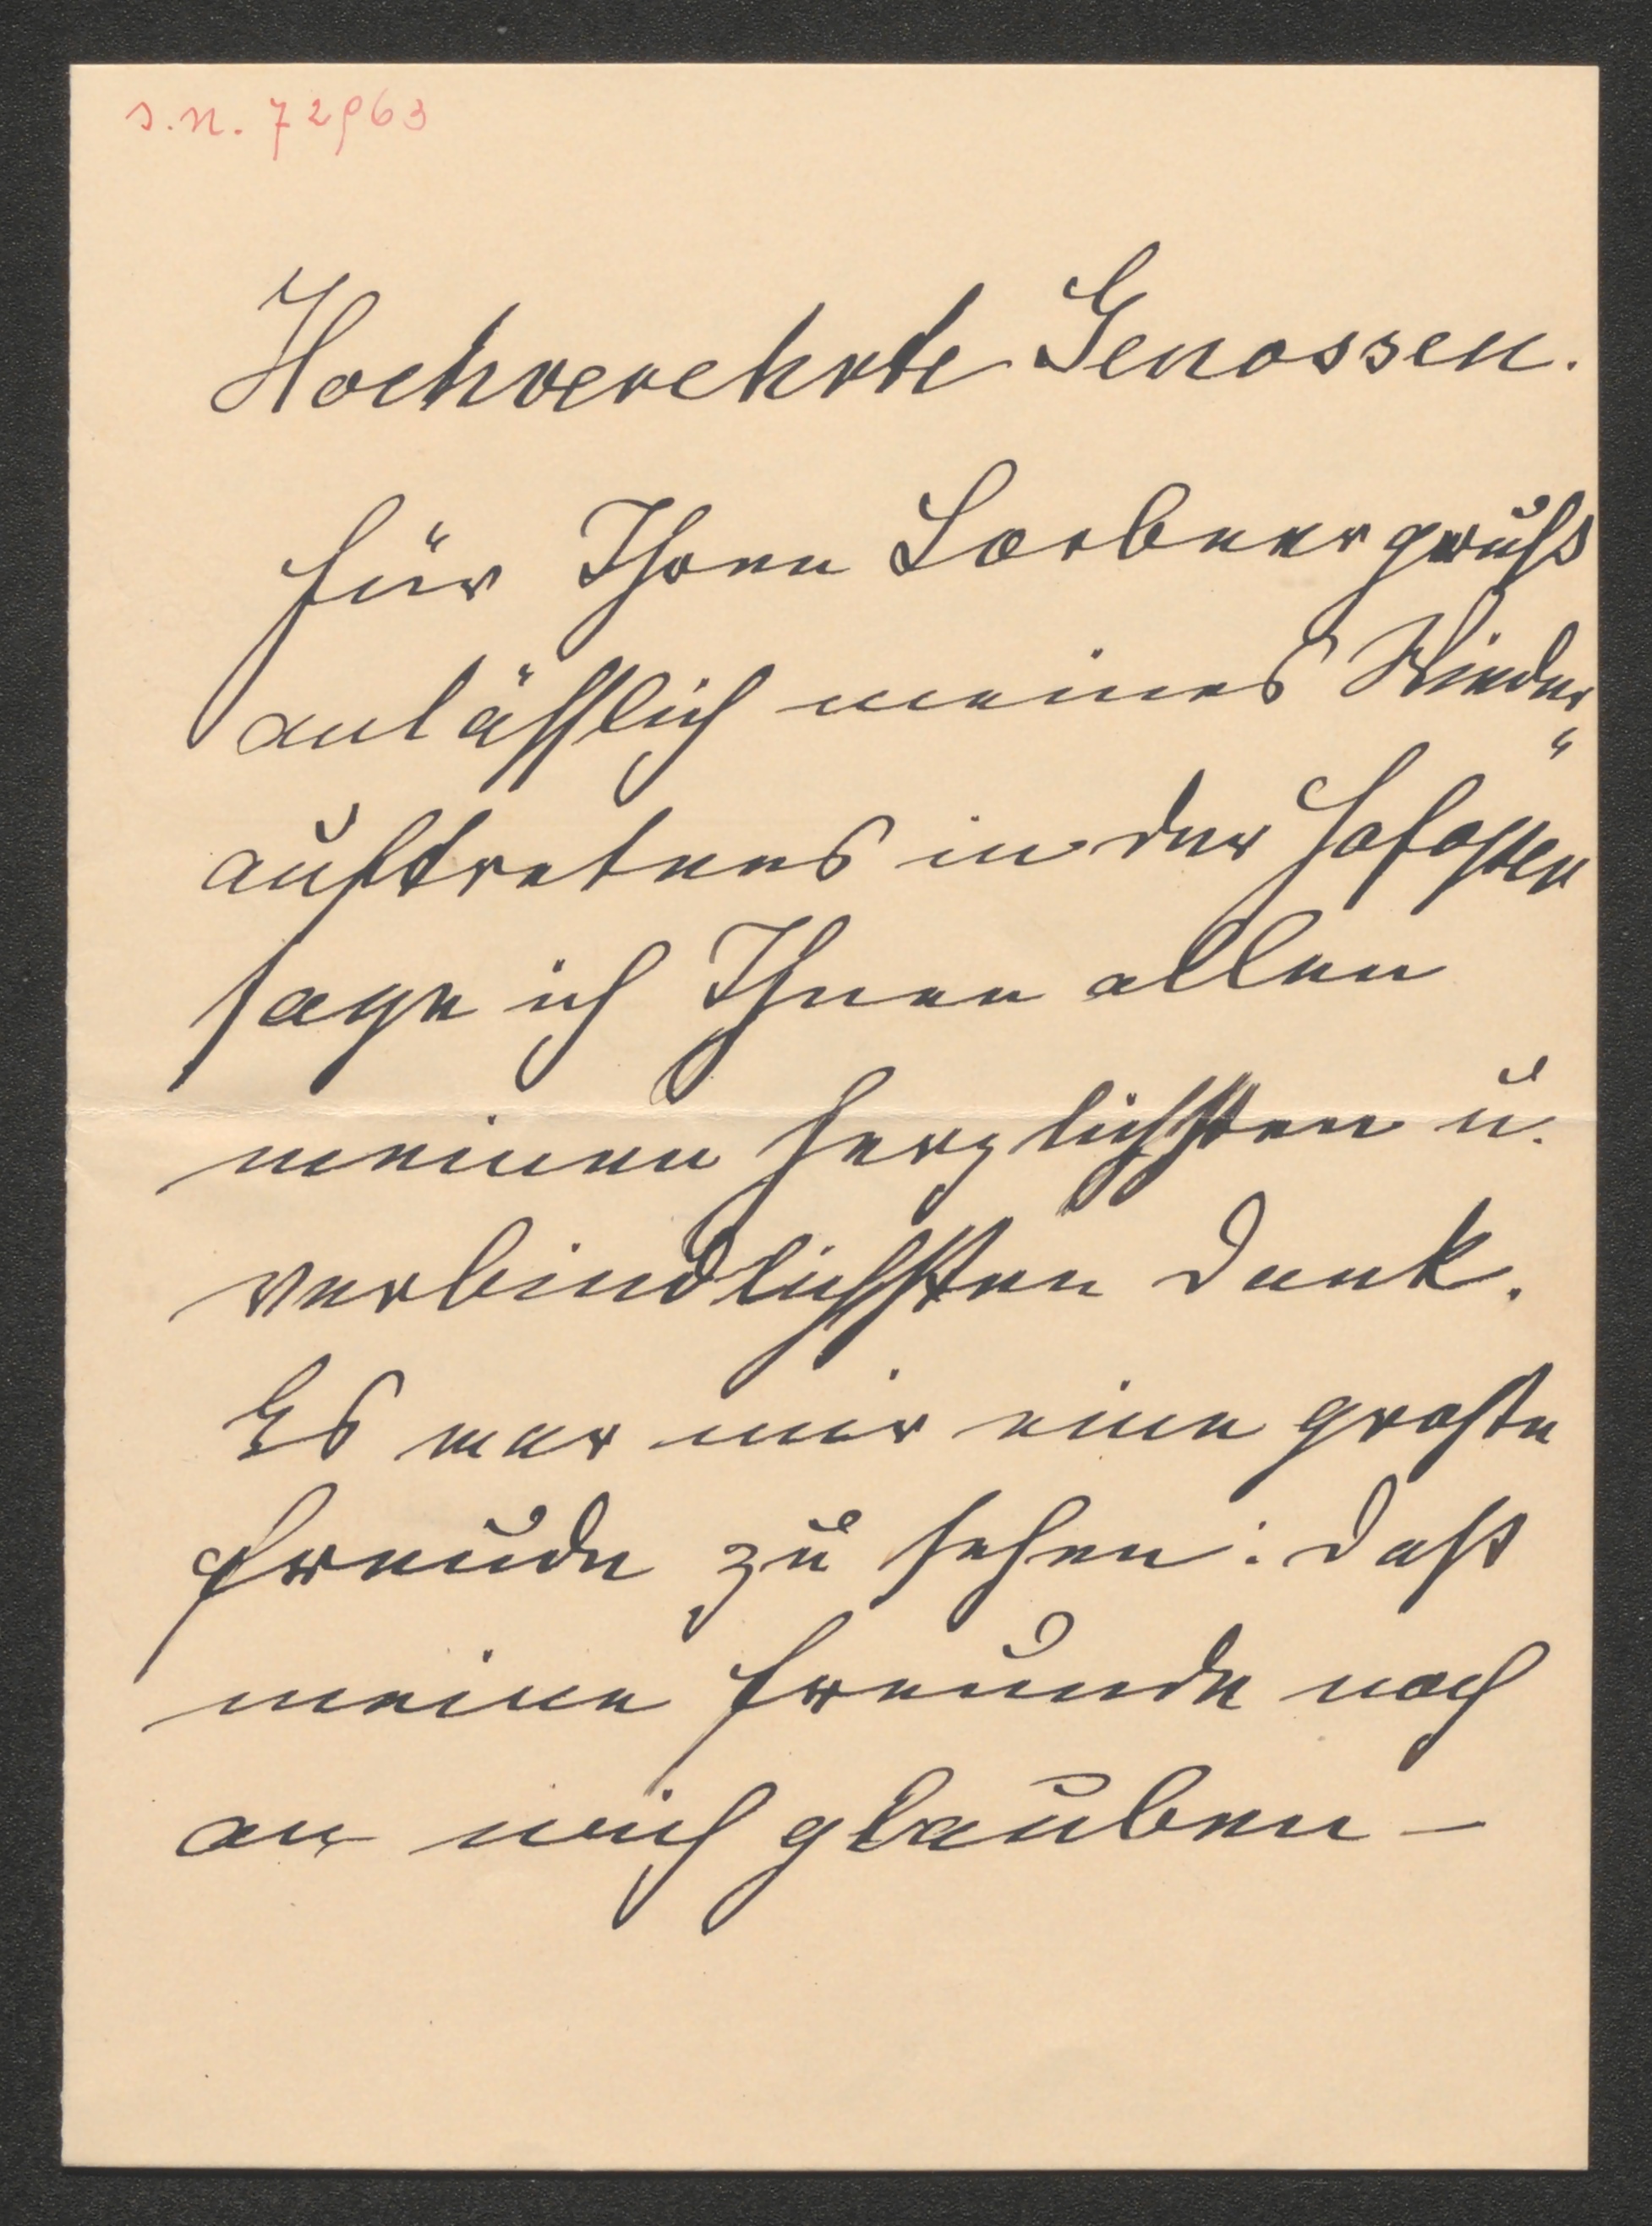 J.N. 72963
Hochverehrte Genossen.
für Ihren Lorbeergruß
anläßlich meines Wieder„
auftretens in der Hofoper
sage ich Ihnen allen
meinen herzlichsten u.
verbindlichsten Dank.
Es war mir eine große
Freude zu sehen: daß
meine Freunde noch
an mich glauben –